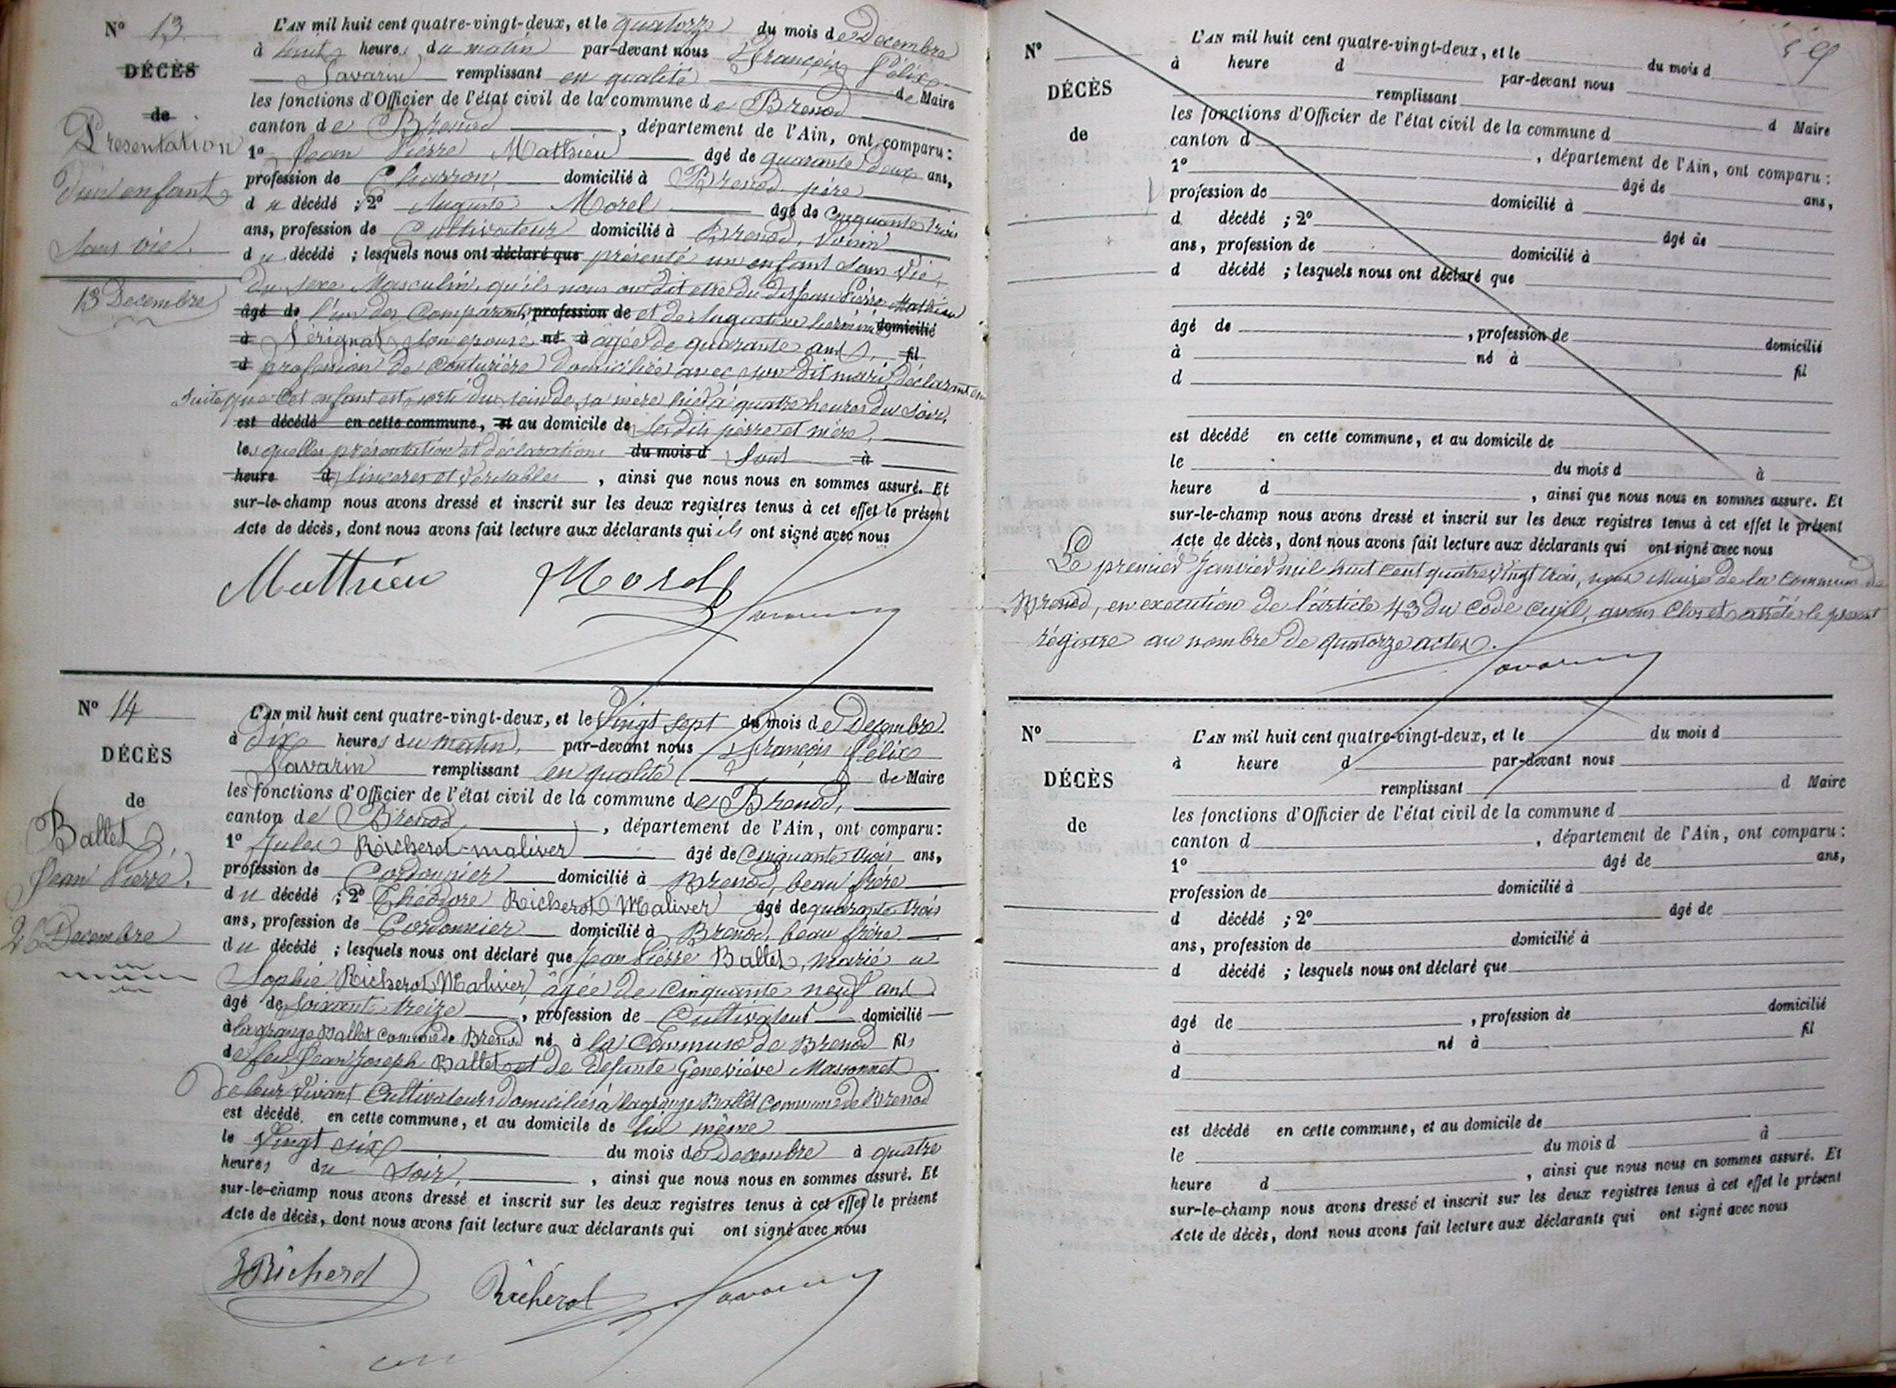 N° 13
DÉCÈS
de
Présentation
d'un enfant
sans vie.
13 Decembre
L'AN mil huit cent quatre-vingt-deux, et le quatorze du mois de Decembre
à huit heures du matin par-devant nous François Félix
Savarin remplissant en qualité de Maire
les fonctions d'Officier de l'état civil de la commune de Brenod
canton de Brenod, département de l'Ain, ont comparu :
1° Jean Pierre Mathieu âgé de quarante deux ans,
profession de Charron, domicilié à Brenod père
du décédé ; 2° Auguste Morel âgé de cinquante trois
ans, profession de Cultivateur domicilié à Brenod, voisin
du décédé ; lesquels nous ont déclaré que présenté un enfant sans vie,
du sexe Masculin, qu'ils nous ont dit etre du dit Jean Pierre Mathieu
âgé de l'un des Comparants profession de et de Augustine domicilié
à Sérignat son épouse né à agée de quarante ans, fil
d profession de couturière domiciliée avec son dit mari, déclarant en
suite que cet enfant est sorti du sein de sa mère hier à quatre heures du soir,
est décédé en cette commune, et au domicile de ses dits père et mère,
lesquelles présentation et déclarations du mois d sont à
heure d sincères et véritables, ainsi que nous nous en sommes assuré. Et
sur-le-champ nous avons dressé et inscrit sur les deux registres tenus à cet effet le présent
Acte de décès, dont nous avons fait lecture aux déclarants qui ils ont signé avec nous
Mathieu Morel Savarin
N° 14
DÉCÈS
de
Ballet,
Jean Pierre.
26 Decembre
L'AN mil huit cent quatre-vingt-deux, et le Vingt sept du mois de Decembre
à Dix heures du matin, par-devant nous François Félix
Savarin remplissant en qualité de Maire
les fonctions d'Officier de l'état civil de la commune de Brenod,
canton de Brenod, département de l'Ain, ont comparu :
1° Jules Richerot-Maliver âgé de Cinquante trois ans,
profession de Cordonnier domicilié à Brenod, beau frère
du décédé ; 2° Théodore Richerot Maliver âgé de quarante trois
ans, profession de Cordonnier domicilié à Brenod, beau frère
du décédé ; lesquels nous ont déclaré que Jean Pierre Ballet, marié a
Sophie Richerot Maliver, âgée de Cinquante neuf ans
âgé de soixante treize, profession de Cultivateur domicilié
à la grange Ballet Commune de Brenod né à la Commune de Brenod fils
de feu Jean Joseph Ballet et de défunte Geneviève Massonnet
de leur vivant Cultivateurs domiciliés à la grange Ballet Commune de Brenod
est décédé en cette commune, et au domicile de lui même
le Vingt six du mois de Decembre à quatre
heures du soir, ainsi que nous nous en sommes assuré. Et
sur-le-champ nous avons dressé et inscrit sur les deux registres tenus à cet effet le présent
Acte de décès, dont nous avons fait lecture aux déclarants qui ont signé avec nous
Richerot Richerot Savarin
N°
DÉCÈS
de
L'AN mil huit cent quatre-vingt-deux, et le du mois d
à heure d par-devant nous
remplissant d Maire
les fonctions d'Officier de l'état civil de la commune d
canton d, département de l'Ain, ont comparu :
1° âgé de ans,
profession de domicilié à
d décédé ; 2° âgé de
ans, profession de domicilié à
d décédé ; lesquels nous ont déclaré que
âgé de, profession de domicilié
à né à fil
d
est décédé en cette commune, et au domicile de
le du mois d à
heure d, ainsi que nous nous en sommes assuré. Et
sur-le-champ nous avons dressé et inscrit sur les deux registres tenus à cet effet le présent
Acte de décès, dont nous avons fait lecture aux déclarants qui ont signé avec nous
Le premier Janvier mil huit cent quatre vingt trois, nous Maire de la commune de
Brenod, en execution de l'article 43 du code civil, avons Clos et arrêté le present
régistre au nombre de quatorze actes.
Savarin
N°
DÉCÈS
de
L'AN mil huit cent quatre-vingt-deux, et le du mois d
à heure d par-devant nous
remplissant d Maire
les fonctions d'Officier de l'état civil de la commune d
canton d, département de l'Ain, ont comparu :
1° âgé de ans,
profession de domicilié à
d décédé ; 2° âgé de
ans, profession de domicilié à
d décédé ; lesquels nous ont déclaré que
âgé de, profession de domicilié
à né à fil
d
est décédé en cette commune, et au domicile de
le du mois d à
heure d, ainsi que nous nous en sommes assuré. Et
sur-le-champ nous avons dressé et inscrit sur les deux registres tenus à cet effet le présent
Acte de décès, dont nous avons fait lecture aux déclarants qui ont signé avec nous